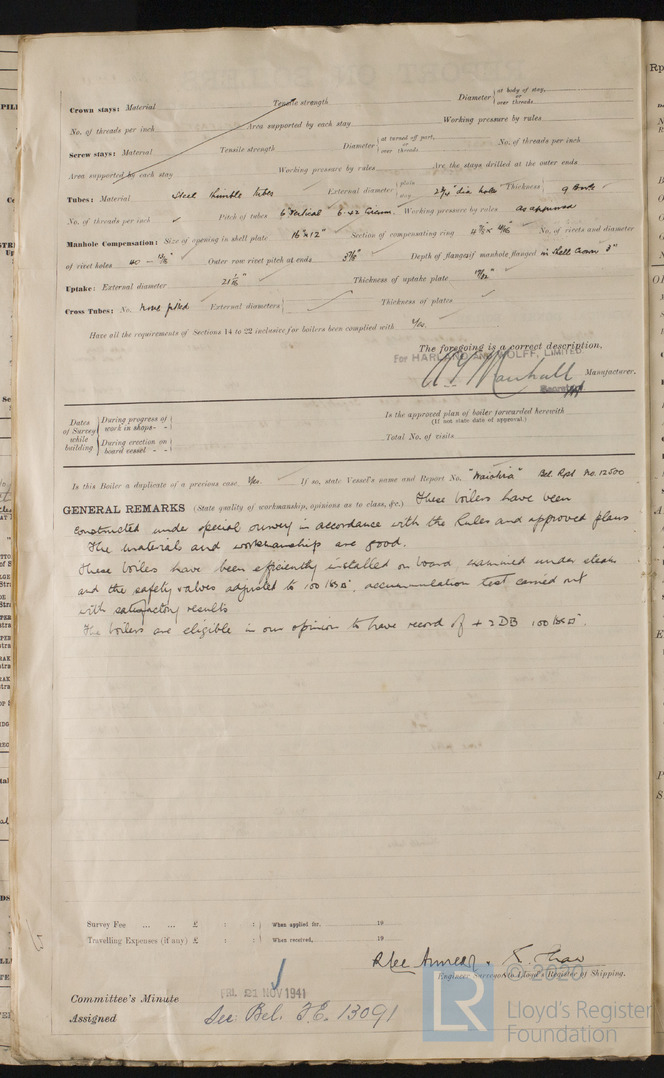 Crown stays: Material Tensile strength Diameter at body of stay, or over threads
No. of threads per inch Area supported by each stay Working pressure by rules
Screw stays: Material Tensile strength Diameter at turned off part, or over threads No. of threads per inch
Area supported by each stay Working pressure by rules Are the stays drilled at the outer ends
Tubes: Material Steel thimble tubes External diameter plain 2¼" dia. holes Thickness
No. of threads per inch ✓ Pitch of tubes 6" Vertical 6.42 Circum. Working pressure by rules as approved
Manhole Compensation: Size of opening in shell plate 16" x 12" Section of compensating ring No. of rivets and diameter
of rivet holes 40 — Outer row rivet pitch at ends Depth of flange if manhole flanged in Shell Crown 3"
Uptake: External diameter Thickness of uptake plate
Cross Tubes: No. None fitted External diameters Thickness of plates
Have all the requirements of Sections 14 to 22 inclusive for boilers been complied with Yes.
The foregoing is a correct description,
For HARLAND AND WOLFF, LIMITED.
Marshall Manufacturer.
Secretary
Dates of Survey while building During progress of work in shops - - Is the approved plan of boiler forwarded herewith
(If not state date of approval.)
During erection on board vessel - - Total No. of visits
Is this Boiler a duplicate of a previous case Yes. If so, state Vessel's name and Report No. "Waiotira" Bel. Rpt No. 12500
GENERAL REMARKS (State quality of workmanship, opinions as to class, &c.) These boilers have been
constructed under special survey in accordance with the Rules and approved plans
The materials and workmanship are good.
These boilers have been efficiently installed on board, examined under steam
and the safety valves adjusted to 100 lbs □", accumulation test carried out
with satisfactory results
The boilers are eligible in our opinion to have record of + 2DB 100 lbs □".
Survey Fee ... ... £ : : When applied for, 19
Travelling Expenses (if any) £ : : When received, 19
Engineer Surveyor to Lloyd's Register of Shipping.
© 2020
Committee's Minute FRI. 21 NOV 1941
Assigned See Bel. F.E. 13091
LR Lloyd's Register Foundation